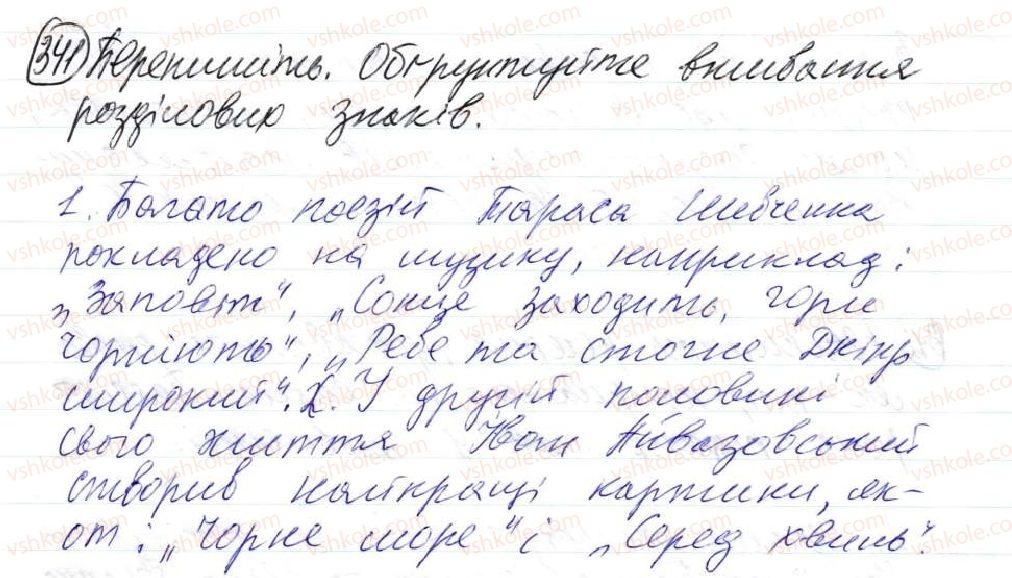 341 Перепишіть. Обґрунтуйте вживання
розділових знаків.
1. Багато поезій Тараса Шевченка
покладено на музику, наприклад:
„Заповіт", „Сонце заходить, гори
чорніють", „Реве та стогне Дніпр
широкий". 2. У другій половині
свого життя Іван Айвазовський
створив найкращі картини, як-
от: „Чорне море" і „Серед хвиль".